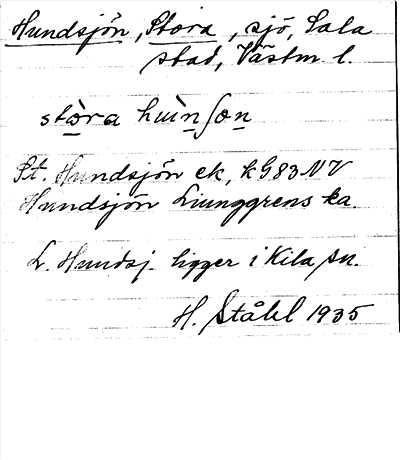 Hundsjön, Stora, sjö, Sala
stad, Västm. l.
stòra huìnʃon
St. Hundsjön ek, kG83NV
Hundsjön Ljunggrens ka.
L. Hundsj. ligger i Kila sn.
H. Ståhl 1935